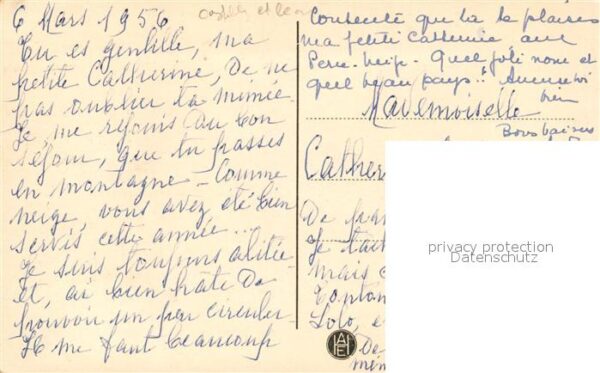 6 Mars 1956
Tu es gentille, ma
petite Catherine, de ne
pas oublier ta mimée.
Je me réjouis du bon
séjour, que tu passes
en montagne - Comme
neige, vous avez, été bien
servis cette année...
Je suis toujours alitée
et, ai bien hâte de
pouvoir un peu circuler.
Il me faut beaucoup
que tu te plaises
ma petite Catherine au
Perce-neige. Quel joli nom et
quel beau pays!!
bien
Mademoiselle
Bons baisers
Cather
De
Je
mais
Lolo, e
De
privacy protection
Datenschutz